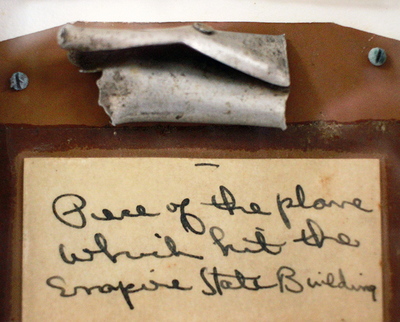 Piece of the plane
which hit the
Empire State Building